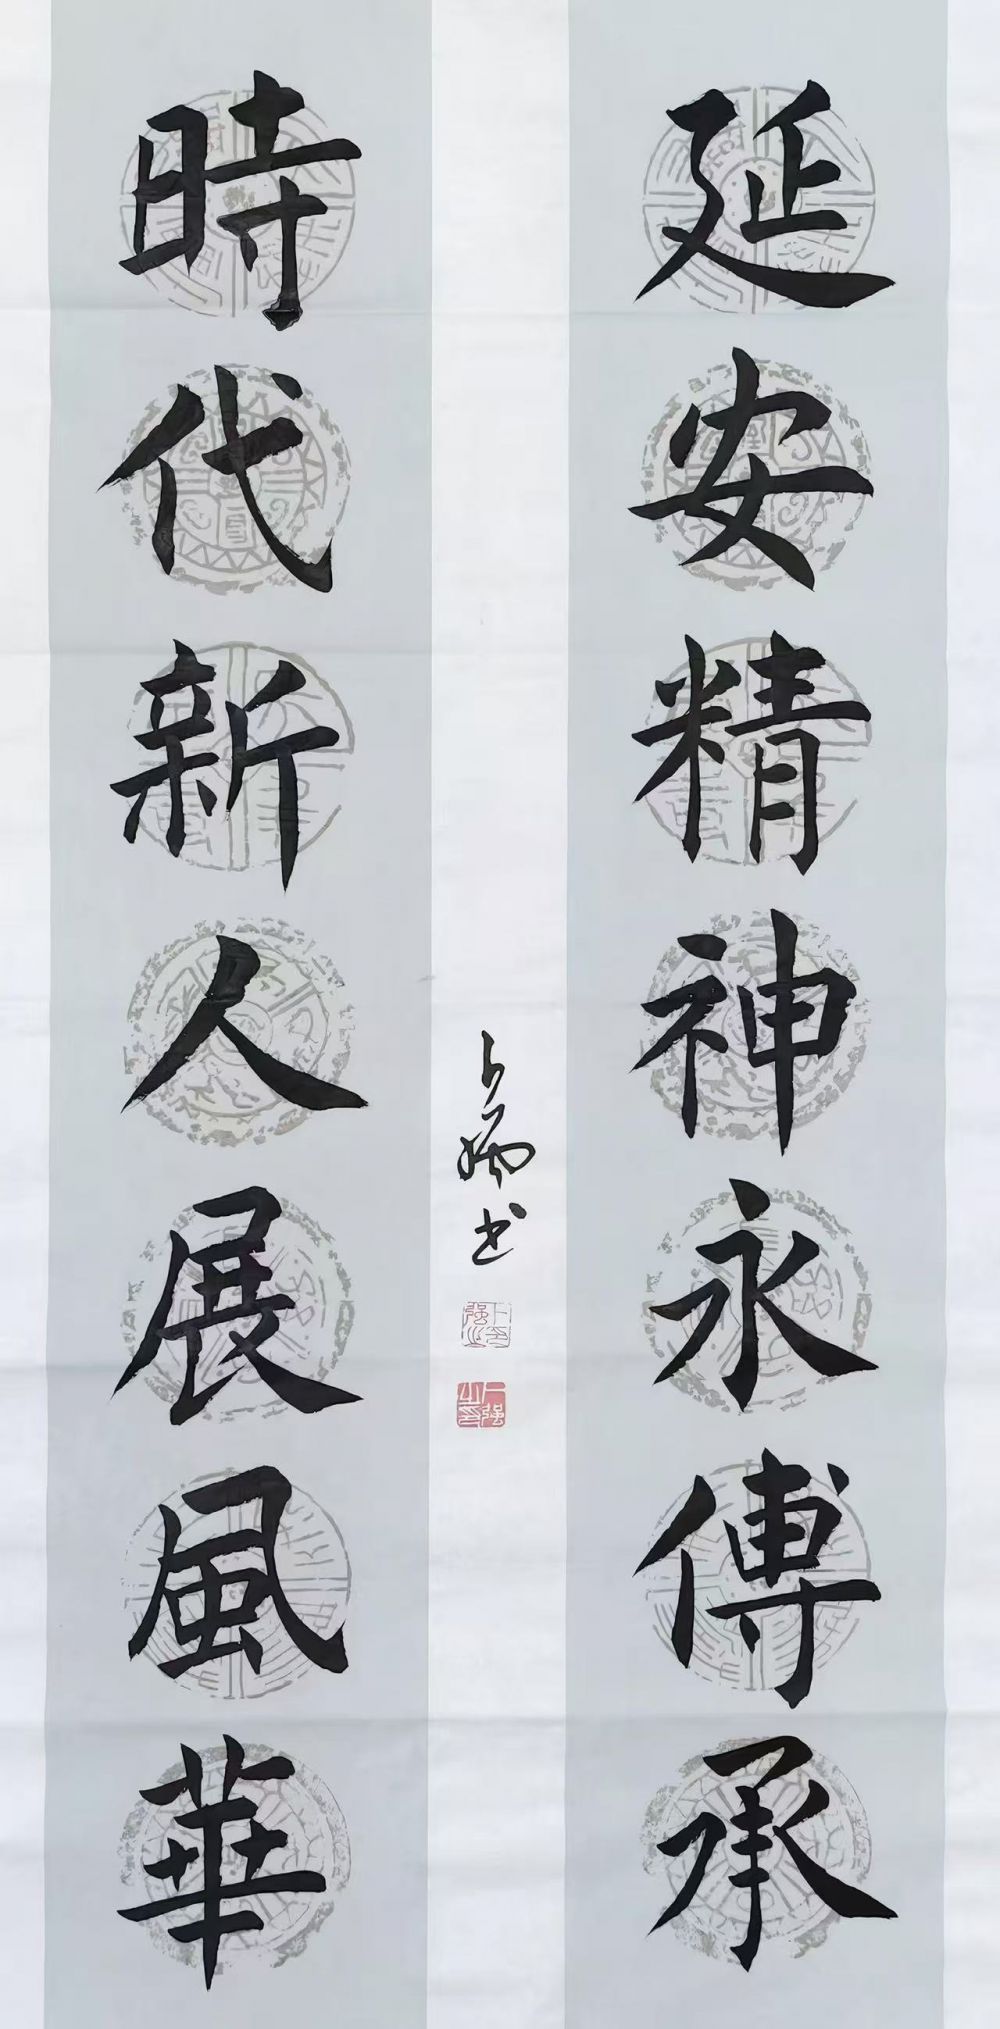 延安精神永傳承
時代新人展風華
强书